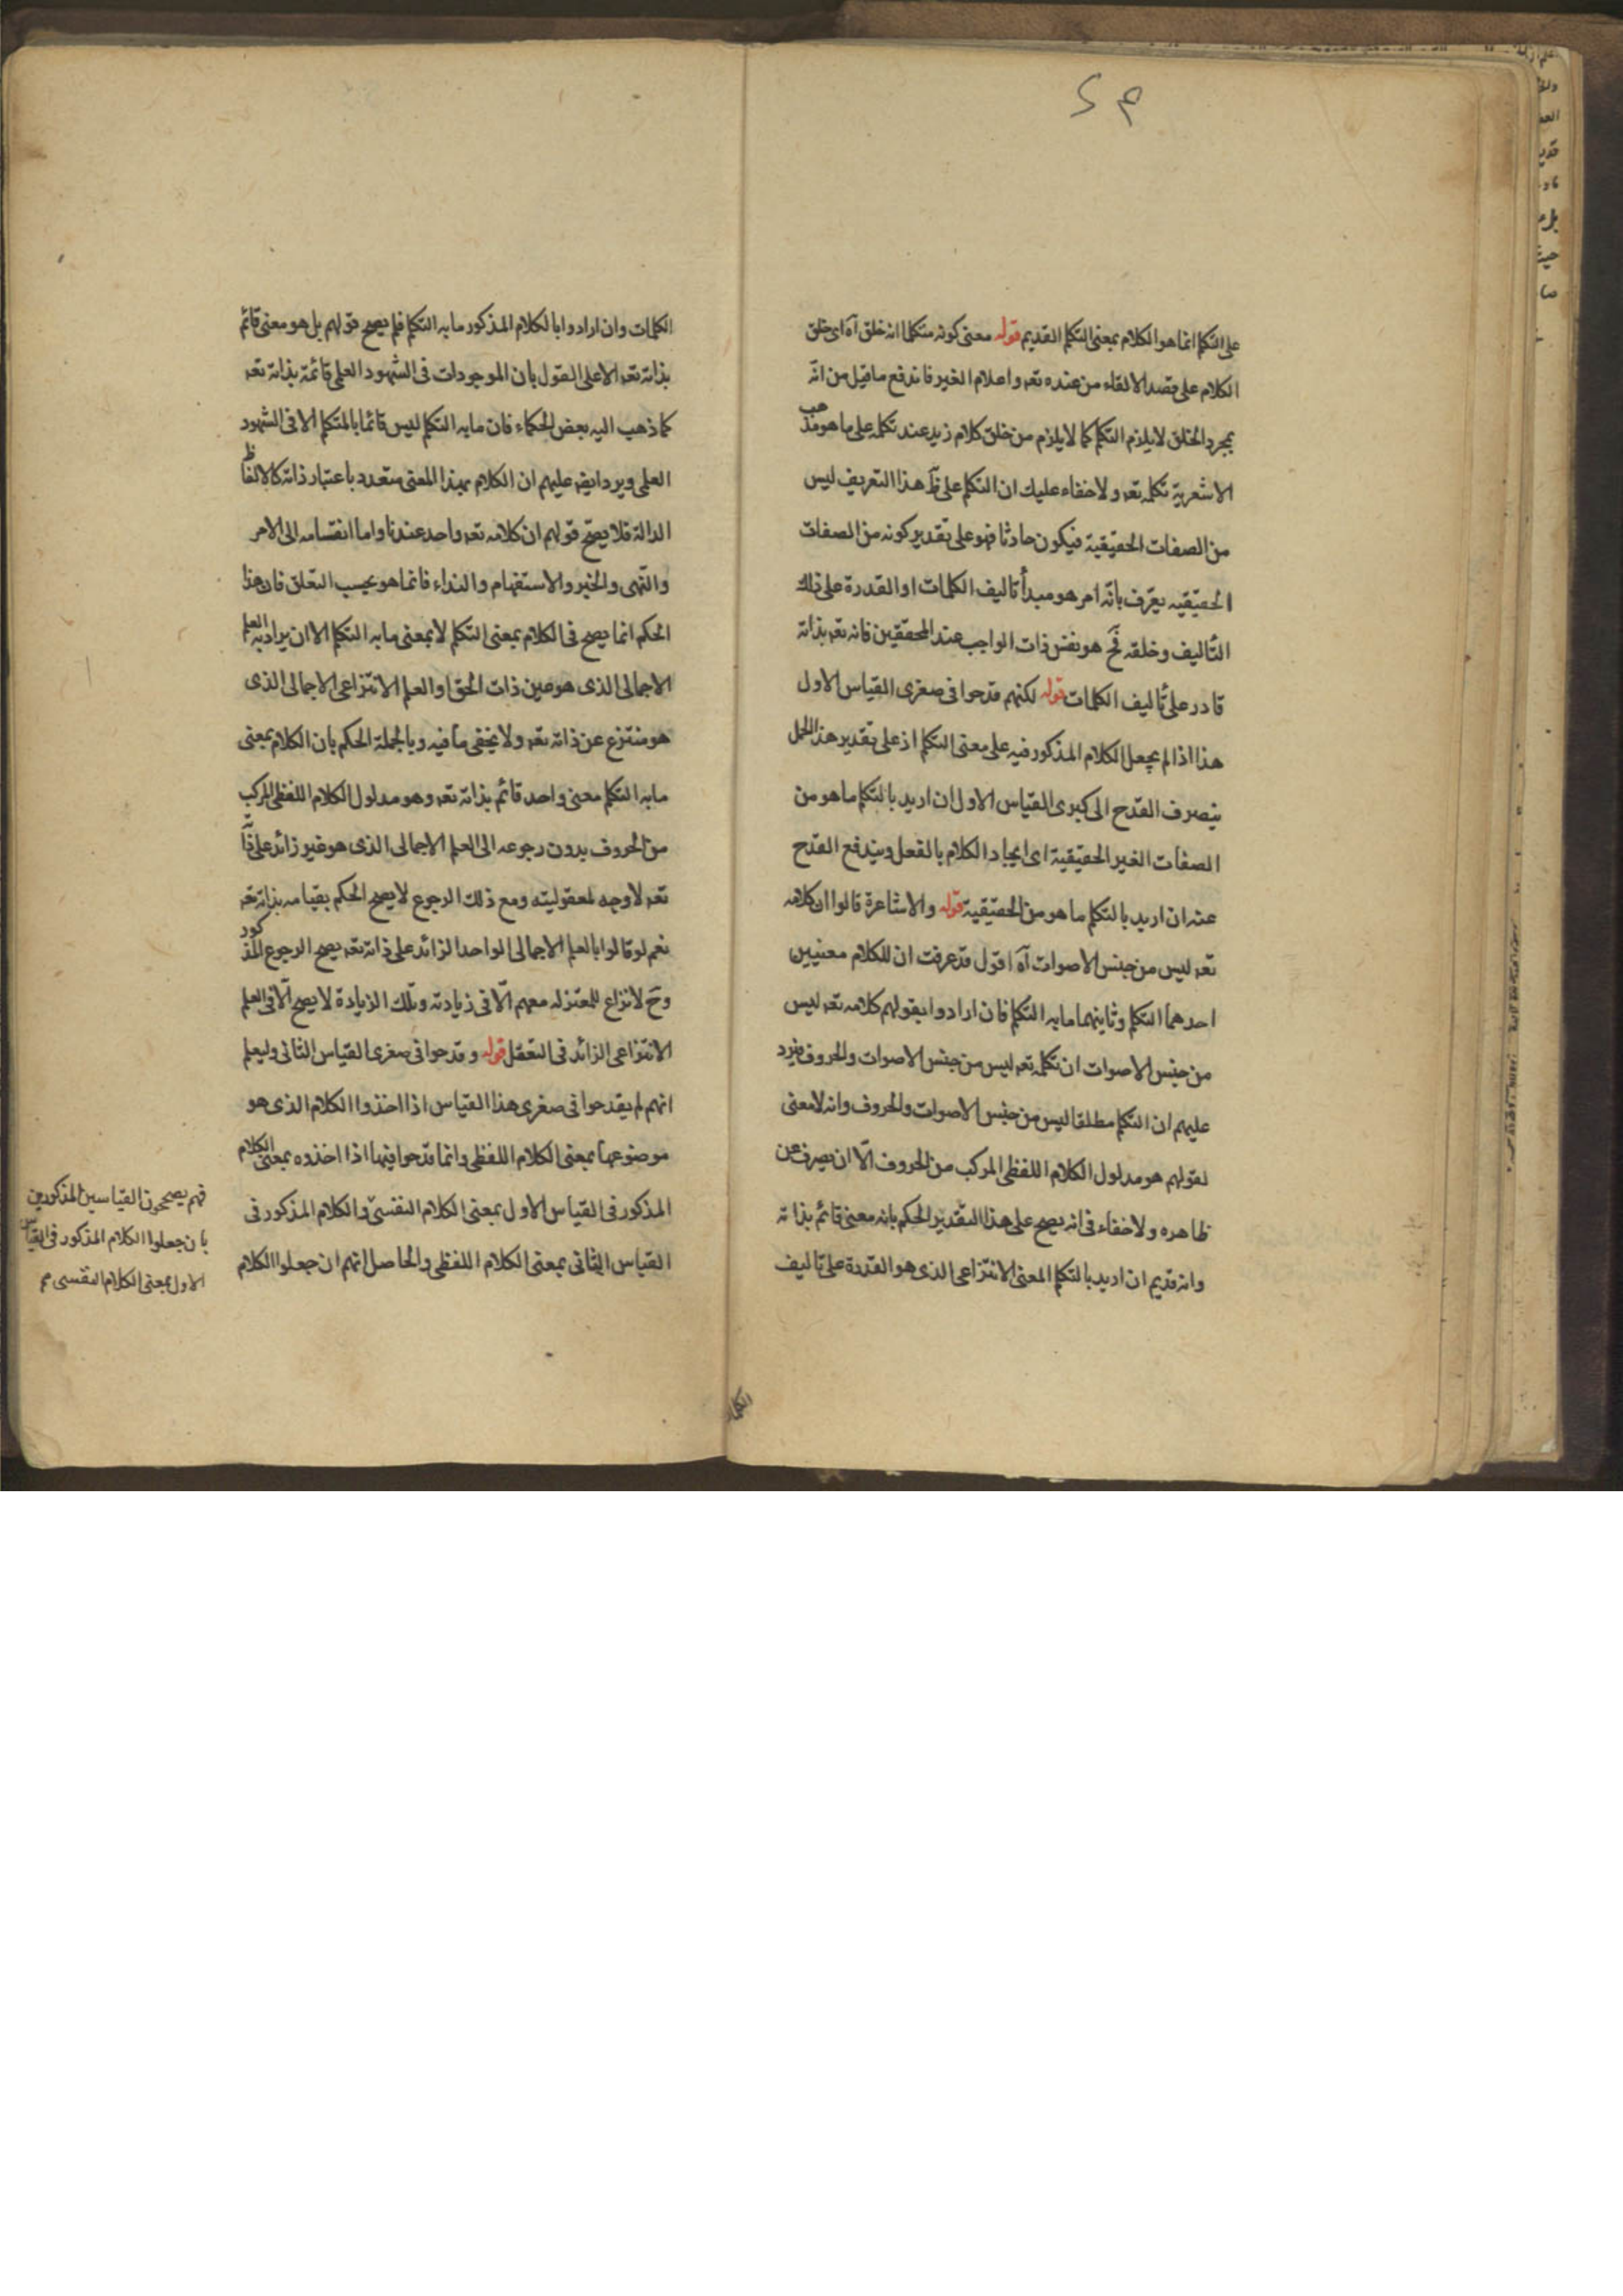 على التكلم انما هو الكلام بمعنى التكلم القديم قوله معنى كونه متكلما انه خلق آه اى خلق
الكلام على قصد الالقاء من عنده تعه واعلام الغير فاندفع ما قيل من انه
بمجرد الخلق لا يلزم التكلم كما لا يلزم من خلق كلام زيد عند تكلمه على ما هو مذهب
الاشعرية تكلمه تعه ولا خفاء عليك ان التكلم على هذا التعريف ليس
من الصفات الحقيقية فيكون حادثا فهو على تقدير كونه من الصفات
الحقيقيه يعرّف بانّه امر هو مبدأ تاليف الكلمات او القدرة على ذلك
التأليف وخلقه فح هو نفس ذات الواجب عند المحققين فانه تعه بذاته
قادر على تأليف الكلمات قوله لكنهم قدحوا فى صغرى القياس الاول
هذا اذا لم يجعل الكلام المذكور فيه على معنى التكلم اذ على تقدير هذا الحمل
ينصرف القدح الى كبرى القياس الاول ان اريد بالتكلم ما هو من
الصفات الغير الحقيقية اى ايجاد الكلام بالفعل ويندفع القدح
عنه ان اريد بالتكلم ما هو من الحقيقية قوله والاشاعرة قالوا ان كلامه
تعه ليس من جنس الاصوات آه اقول قد عرفت ان للكلام معنيين
احدهما التكلم وثانيهما ما به التكلم فان ارادوا بقولهم كلامه تعه ليس
من جنس الاصوات ان تكلمه تعه ليس من جنس الاصوات والحروف فيرد
عليهم ان التكلم مطلقا ليس من جنس الاصوات والحروف وانه لا معنى
لقولهم هو مدلول الكلام اللفظى المركب من الحروف الّا ان يصرف عن
ظاهره ولا خفاء فى انه يصح على هذا التقدير الحكم بانه معنى قائم بذاته
وانه قديم ان اريد بالتكلم المعنى الانتزاعى الذى هو القدرة على تاليف
الكلمات
الكلمات وان ارادوا بالكلام المذكور ما به التكلم فلم يصح قولهم بل هو معنى قائم
بذاته تعه الا على القول بان الموجودات فى الشهود العلمى قائمة بذاته تعه
كما ذهب اليه بعض الحكماء فان ما به التكلم ليس قائما بالمتكلم الا فى الشهود
العلمى ويرد ايضه عليهم ان الكلام بهذا المعنى متعدد باعتبار ذاته كالالفاظ
الدالة فلا يصحّ قولهم ان كلامه تعه واحد عندنا واما انقسامه الى الامر
والنهى والخبر والاستفهام والنداء فانما هو بحسب التعلق فان هذا
الحكم انما يصح فى الكلام بمعنى التكلم لا بمعنى ما به التكلم الا ان يراد به العلم
الاجمالى الذى هو عين ذات الحق او العلم الانتزاعى الاجمالى الذى
هو منتزع عن ذاته تعه ولا يخفى ما فيه وبالجملة الحكم بان الكلام بمعنى
ما به التكلم معنى واحد قائم بذاته تعه وهو مدلول الكلام اللفظى المركب
من الحروف بدون رجوعه الى العلم الاجمالى الذى هو غير زائد على ذاته
تعه لا وجه لمعقوليته ومع ذلك الرجوع لا يصح الحكم بقيامه بذاته تعه
نعم لو قالوا بالعلم الاجمالى الواحد الزائد على ذاته تعه يصح الرجوع المذكور
وح لا نزاع للمعتزله معهم الّا فى زيادته وتلك الزيادة لا يصح الّا فى العلم
الانتزاعى الزائد فى التعقل قوله وقدحوا فى صغرى القياس الثانى وليعلم
انهم لم يقدحوا فى صغرى هذا القياس اذا اخذوا الكلام الذى هو
موضوعها بمعنى الكلام اللفظى وانما قدحوا فيها اذا اخذوه بمعنى الكلام
المذكور فى القياس الاول بمعنى الكلام النفسىّ والكلام المذكور فى
القياس الثانى بمعنى الكلام اللفظى والحاصل انهم ان جعلوا الكلام
فهم يصححون القياسين المذكورين
بان جعلوا الكلام المذكور فى القياس
الاول بمعنى الكلام النفسى